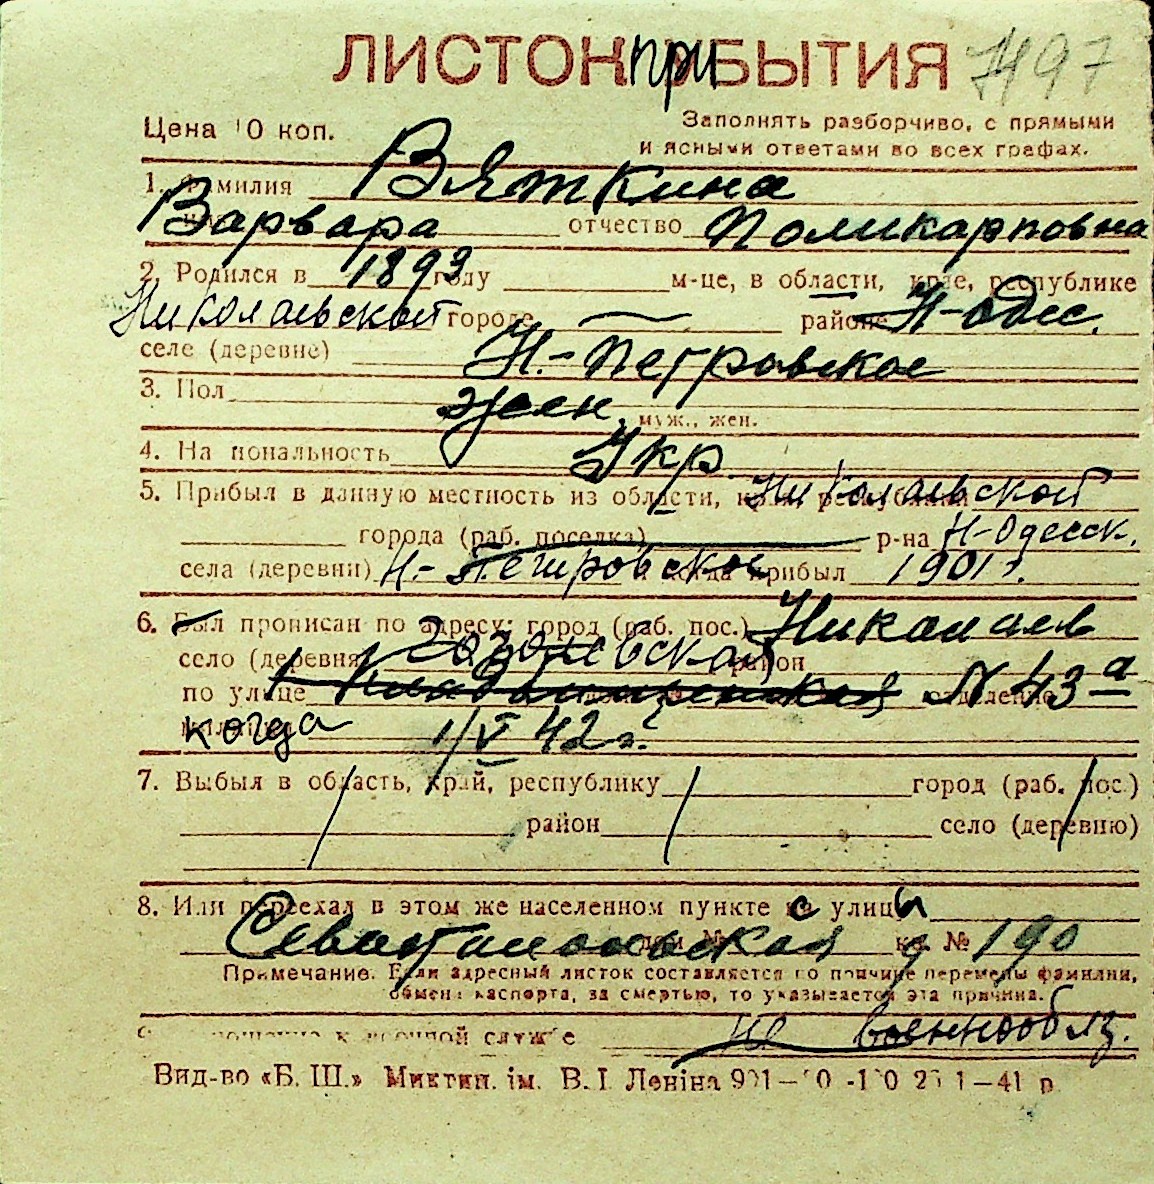 ЛИСТОК ПРИБЫТИЯ 7497
Цена 10 коп. Заполнять разборчиво, с прямыми
и ясными ответами во всех графах.
1. Фамилия Вяткина
Варвара отчество Поликарповна
2. Родился в 1893 году м-це, в области, крае, республике
Николаевской городе районе Н-Одес.
селе (деревне) Н.-Петровское
3. Пол жен. муж., жен.
4. Национальность Укр.
5. Прибыл в данную местность из области, края, республики Николаевской
города (раб. поселка) р-на Н-Одесск.
села (деревни) Н.-Петровское и когда прибыл 1901 г.
6. Был прописан по адресу: город (раб. пос.) Николаев
село (деревня) район
по улице N 43 а отделение
когда 1/V 42 г.
7. Выбыл в область, край, республику город (раб. пос.)
район село (деревню)
8. Или переехал в этом же населенном пункте с улицы
Севастопольская дом № 190 кв. №
Примечание. Если адресный листок составляется по причине перемены фамилии,
обмена паспорта, за смертью, то указывается эта причина.
к военной службе не военнообяз.
Вид-во «Б. Ш.» Микгип. ім. В. І. Леніна